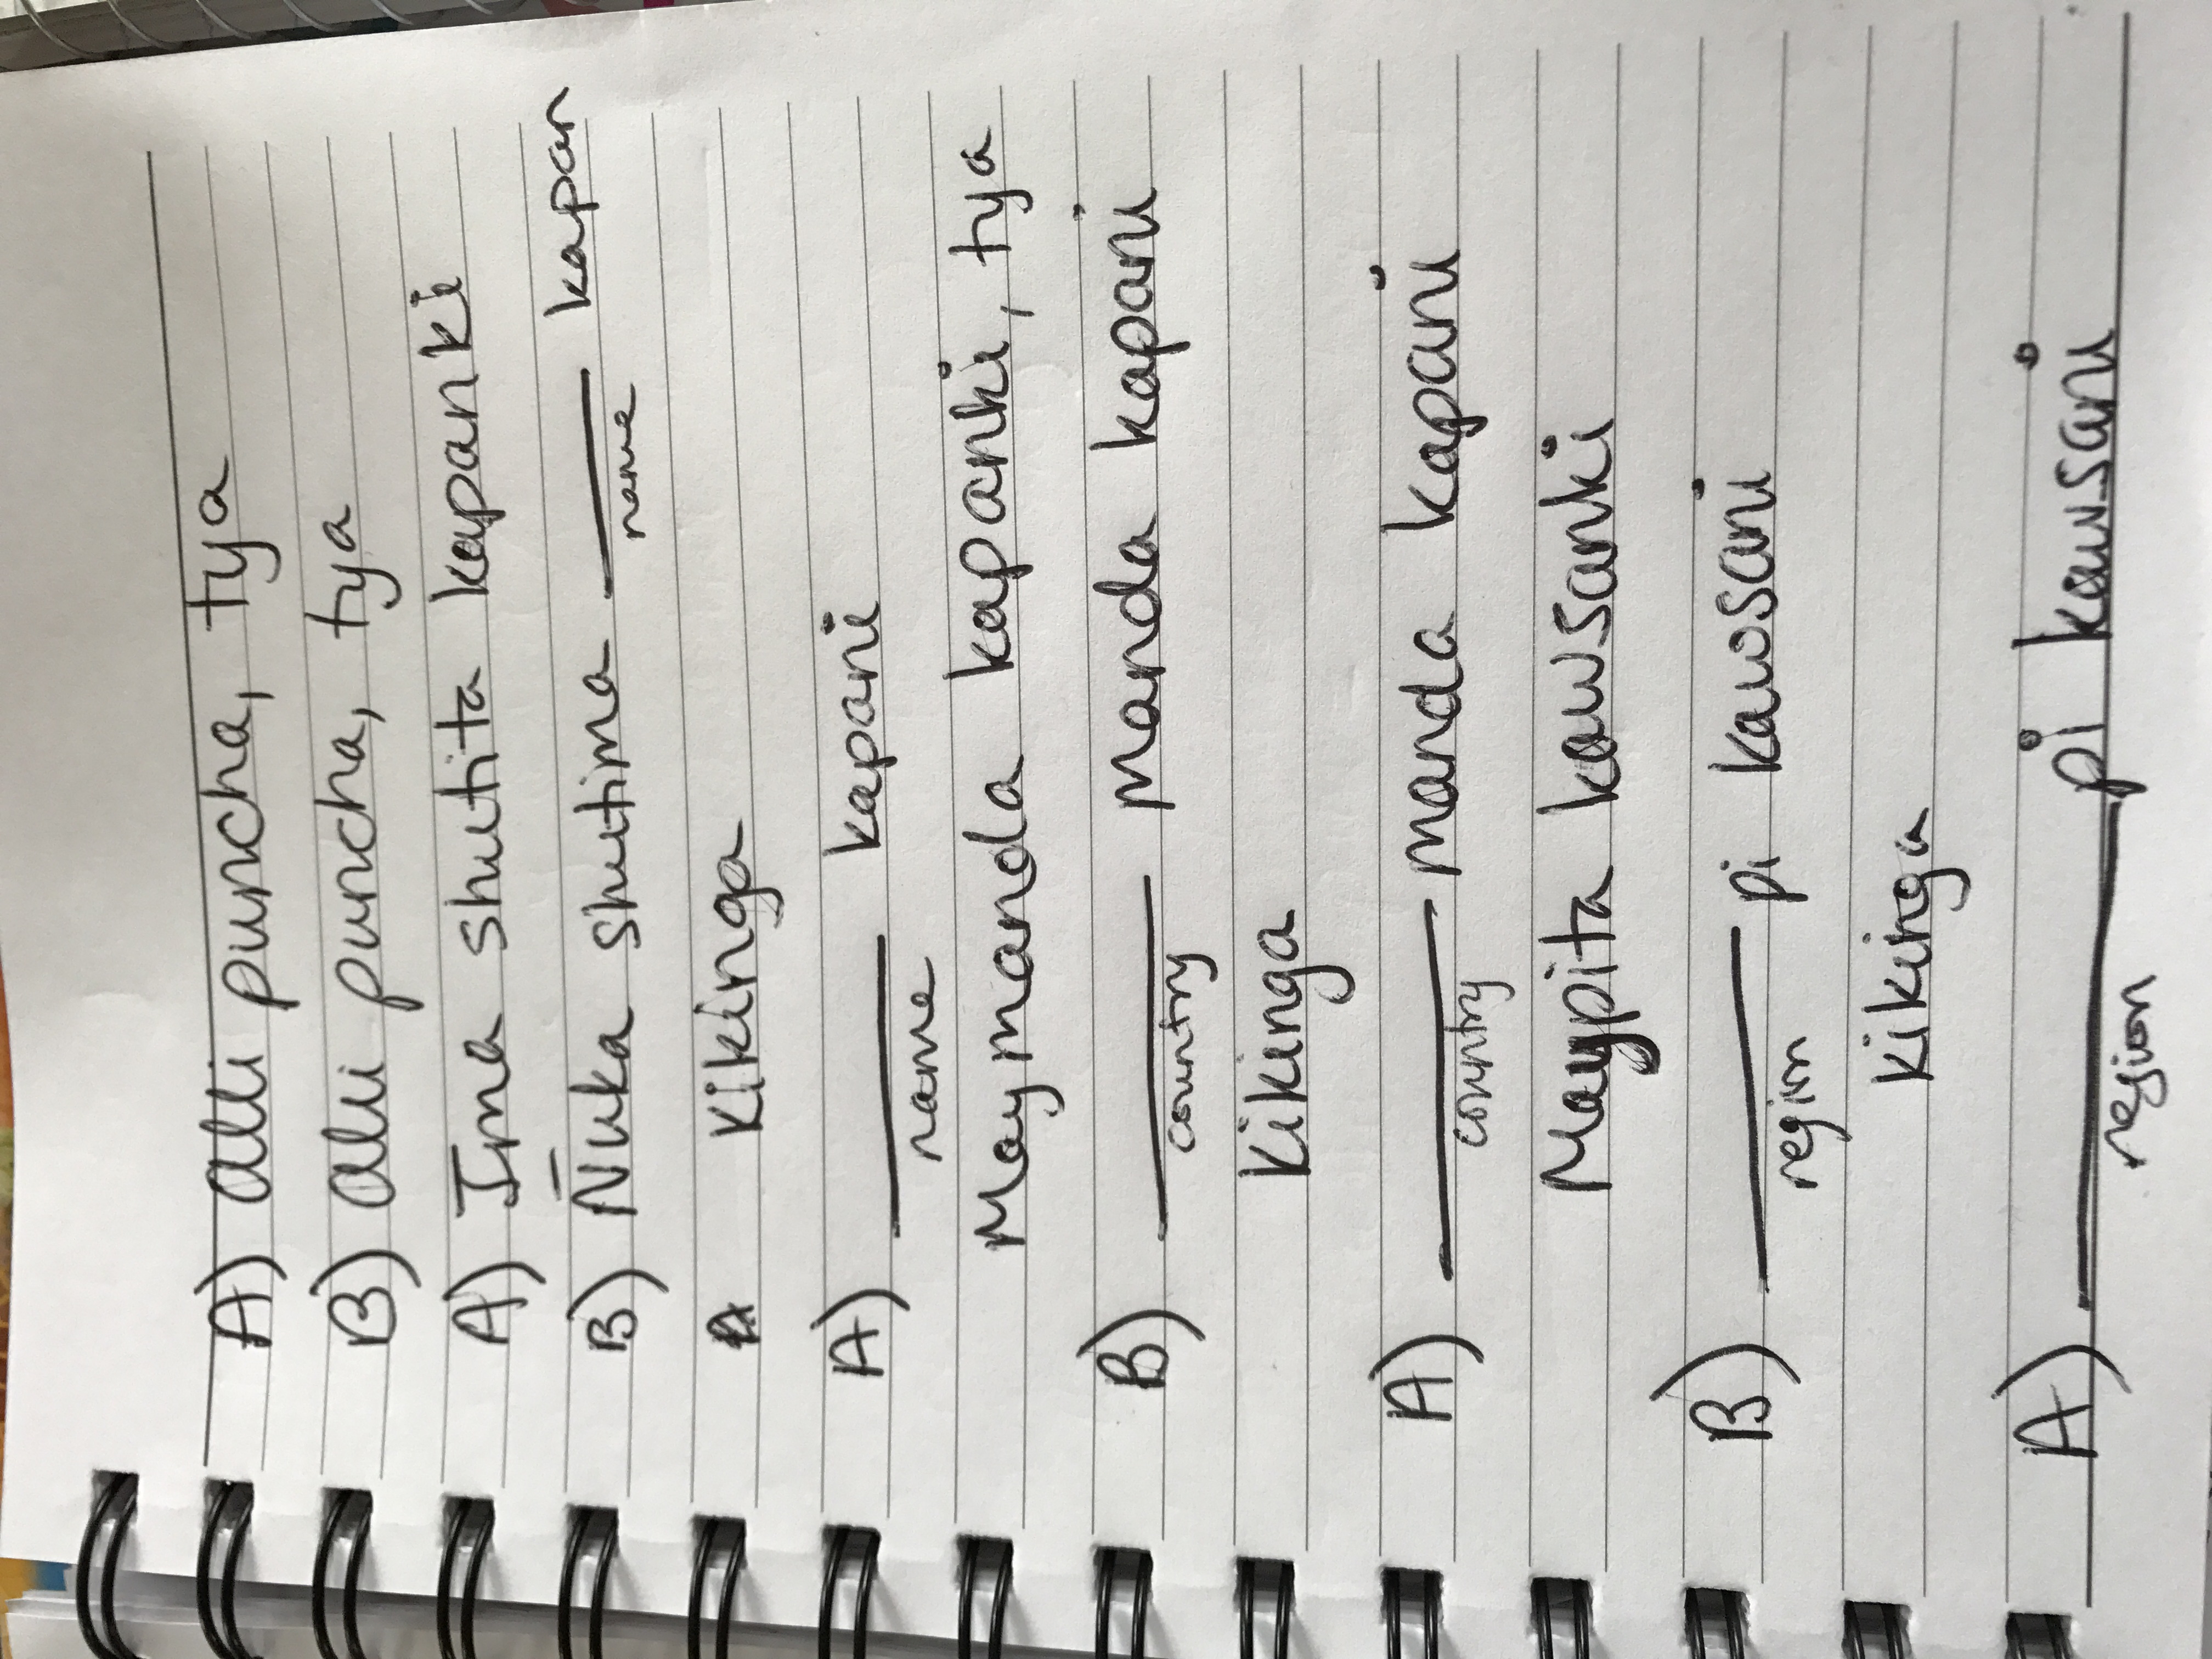 A) alli puncha, tya
B) alli puncha, tya
A) Ima shutita kapanki
B) Ñuka shutima ___ kapan
name
Kikinga
A) ___ kapani
name
Maymanda kapanki, tya
B) ___ manda kapani
country
Kikinga
A) ___ manda kapani
country
Maypita kawsanki
B) ___ pi kawsani
region
Kikinga
A) ___ pi kawsani
region